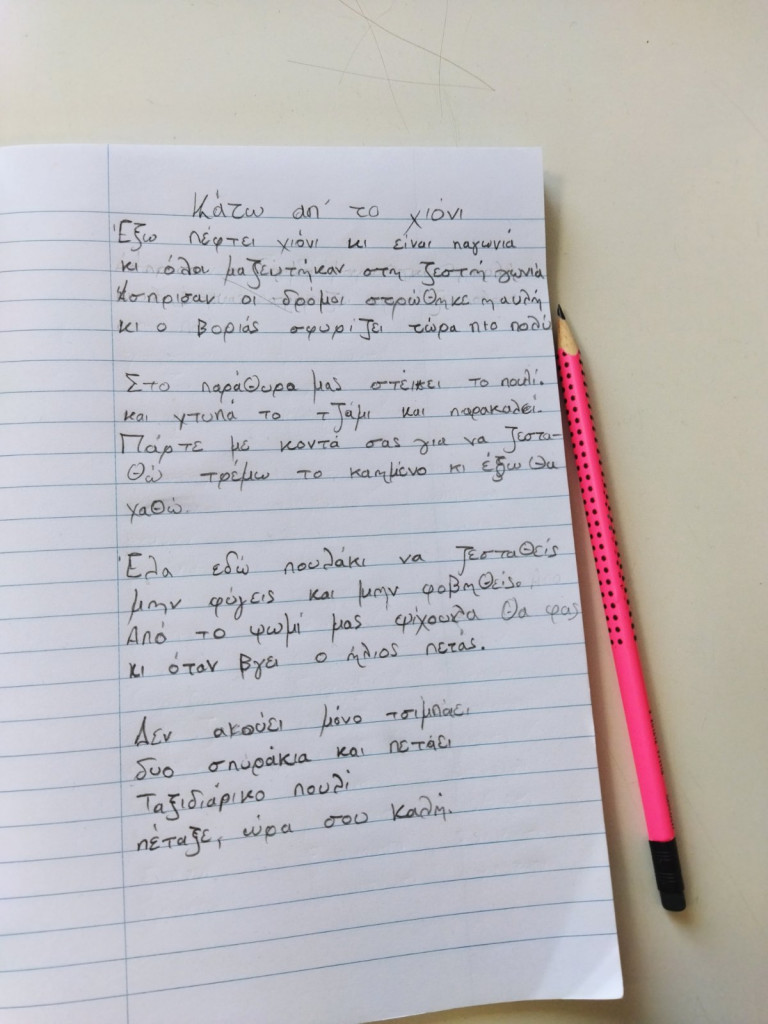 Κάτω απ' το χιόνι
Έξω πέφτει χιόνι κι είναι παγωνιά
κι όλα μαζευτήκαν στη ζεστή γωνιά
Άσπρισαν οι δρόμοι στρώθηκε η αυλή
κι ο βοριάς σφυρίζει τώρα πιο πολύ
Στο παράθυρα μας στέκει το πουλί.
και χτυπά το τζάμι και παρακαλεί.
Πάρτε με κοντά σας για να ζεστα-
θώ τρέμω το καημένο κι έξω θα
χαθώ.
Έλα εδώ πουλάκι να ζεσταθείς
μην φύγεις και μην φοβηθείς.
Από το ψωμί μας ψίχουλα θα φας
κι όταν βγει ο ήλιος πετάς.
Δεν ακούει μόνο τσιμπάει
δυο σπυράκια και πετάει
Ταξιδιάρικο πουλί
πέταξε, ώρα σου καλή.